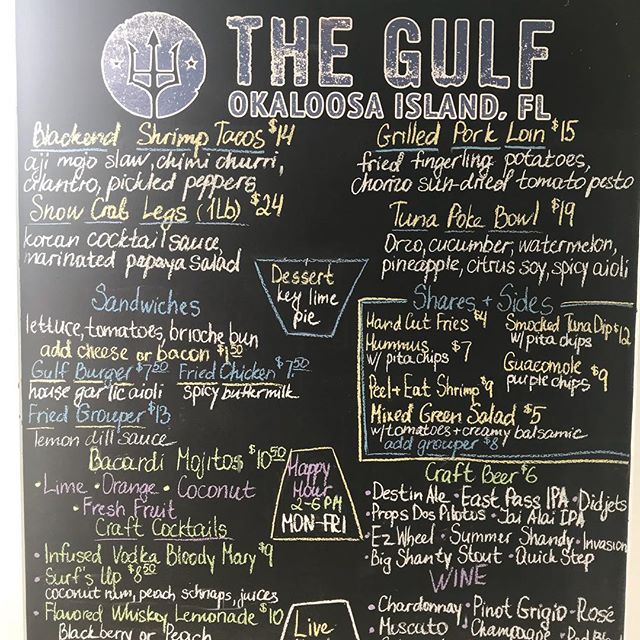 THE GULF
OKALOOSA ISLAND, FL
Blackend Shrimp Tacos $14
aji mojo slaw, chimi churri,
cilantro, pickled peppers
Snow Crab Legs (1Lb) $24
korean cocktail sauce,
marinated papaya salad
Grilled Pork Loin $15
fried fingerling potatoes,
chorizo sun-dried tomato pesto
Tuna Poke Bowl $19
Orzo, cucumber, watermelon,
pineapple, citrus soy, spicy aioli
Dessert
key lime
pie
Sandwiches
lettuce, tomatoes, brioche bun
add cheese or bacon $1.50
Gulf Burger $7.50 Fried Chicken $7.50
house garlic aioli spicy buttermilk
Fried Grouper $13
lemon dill sauce
Shares + Sides
Hand Cut Fries $4
Hummus $7
w/ pita chips
Peel + Eat Shrimp $9
Smocked Tuna Dip $12
w/ pita chips
Guacomole $9
purple chips
Mixed Green Salad $5
w/ tomatoes + creamy balsamic
add grouper $8
Bacardi Mojitos $10.50
• Lime • Orange • Coconut
• Fresh Fruit
Craft Cocktails
• Infused Vodka Bloody Mary $9
• Surf's Up $8.50
coconut rum, peach schnaps, juices
• Flavored Whiskey Lemonade $10
Blackberry or Peach
Happy
Hour
2-6 PM
MON-FRI
Live
Craft Beer $6
• Destin Ale • East Pass IPA • Didjets
• Props Dos Pilotos • Jai Alai IPA
• EZ Wheel • Summer Shandy • Invasion
• Big Shanty Stout • Quick Step
WINE
• Chardonnay • Pinot Grigio • Rosé
• Muscuto • Champagne